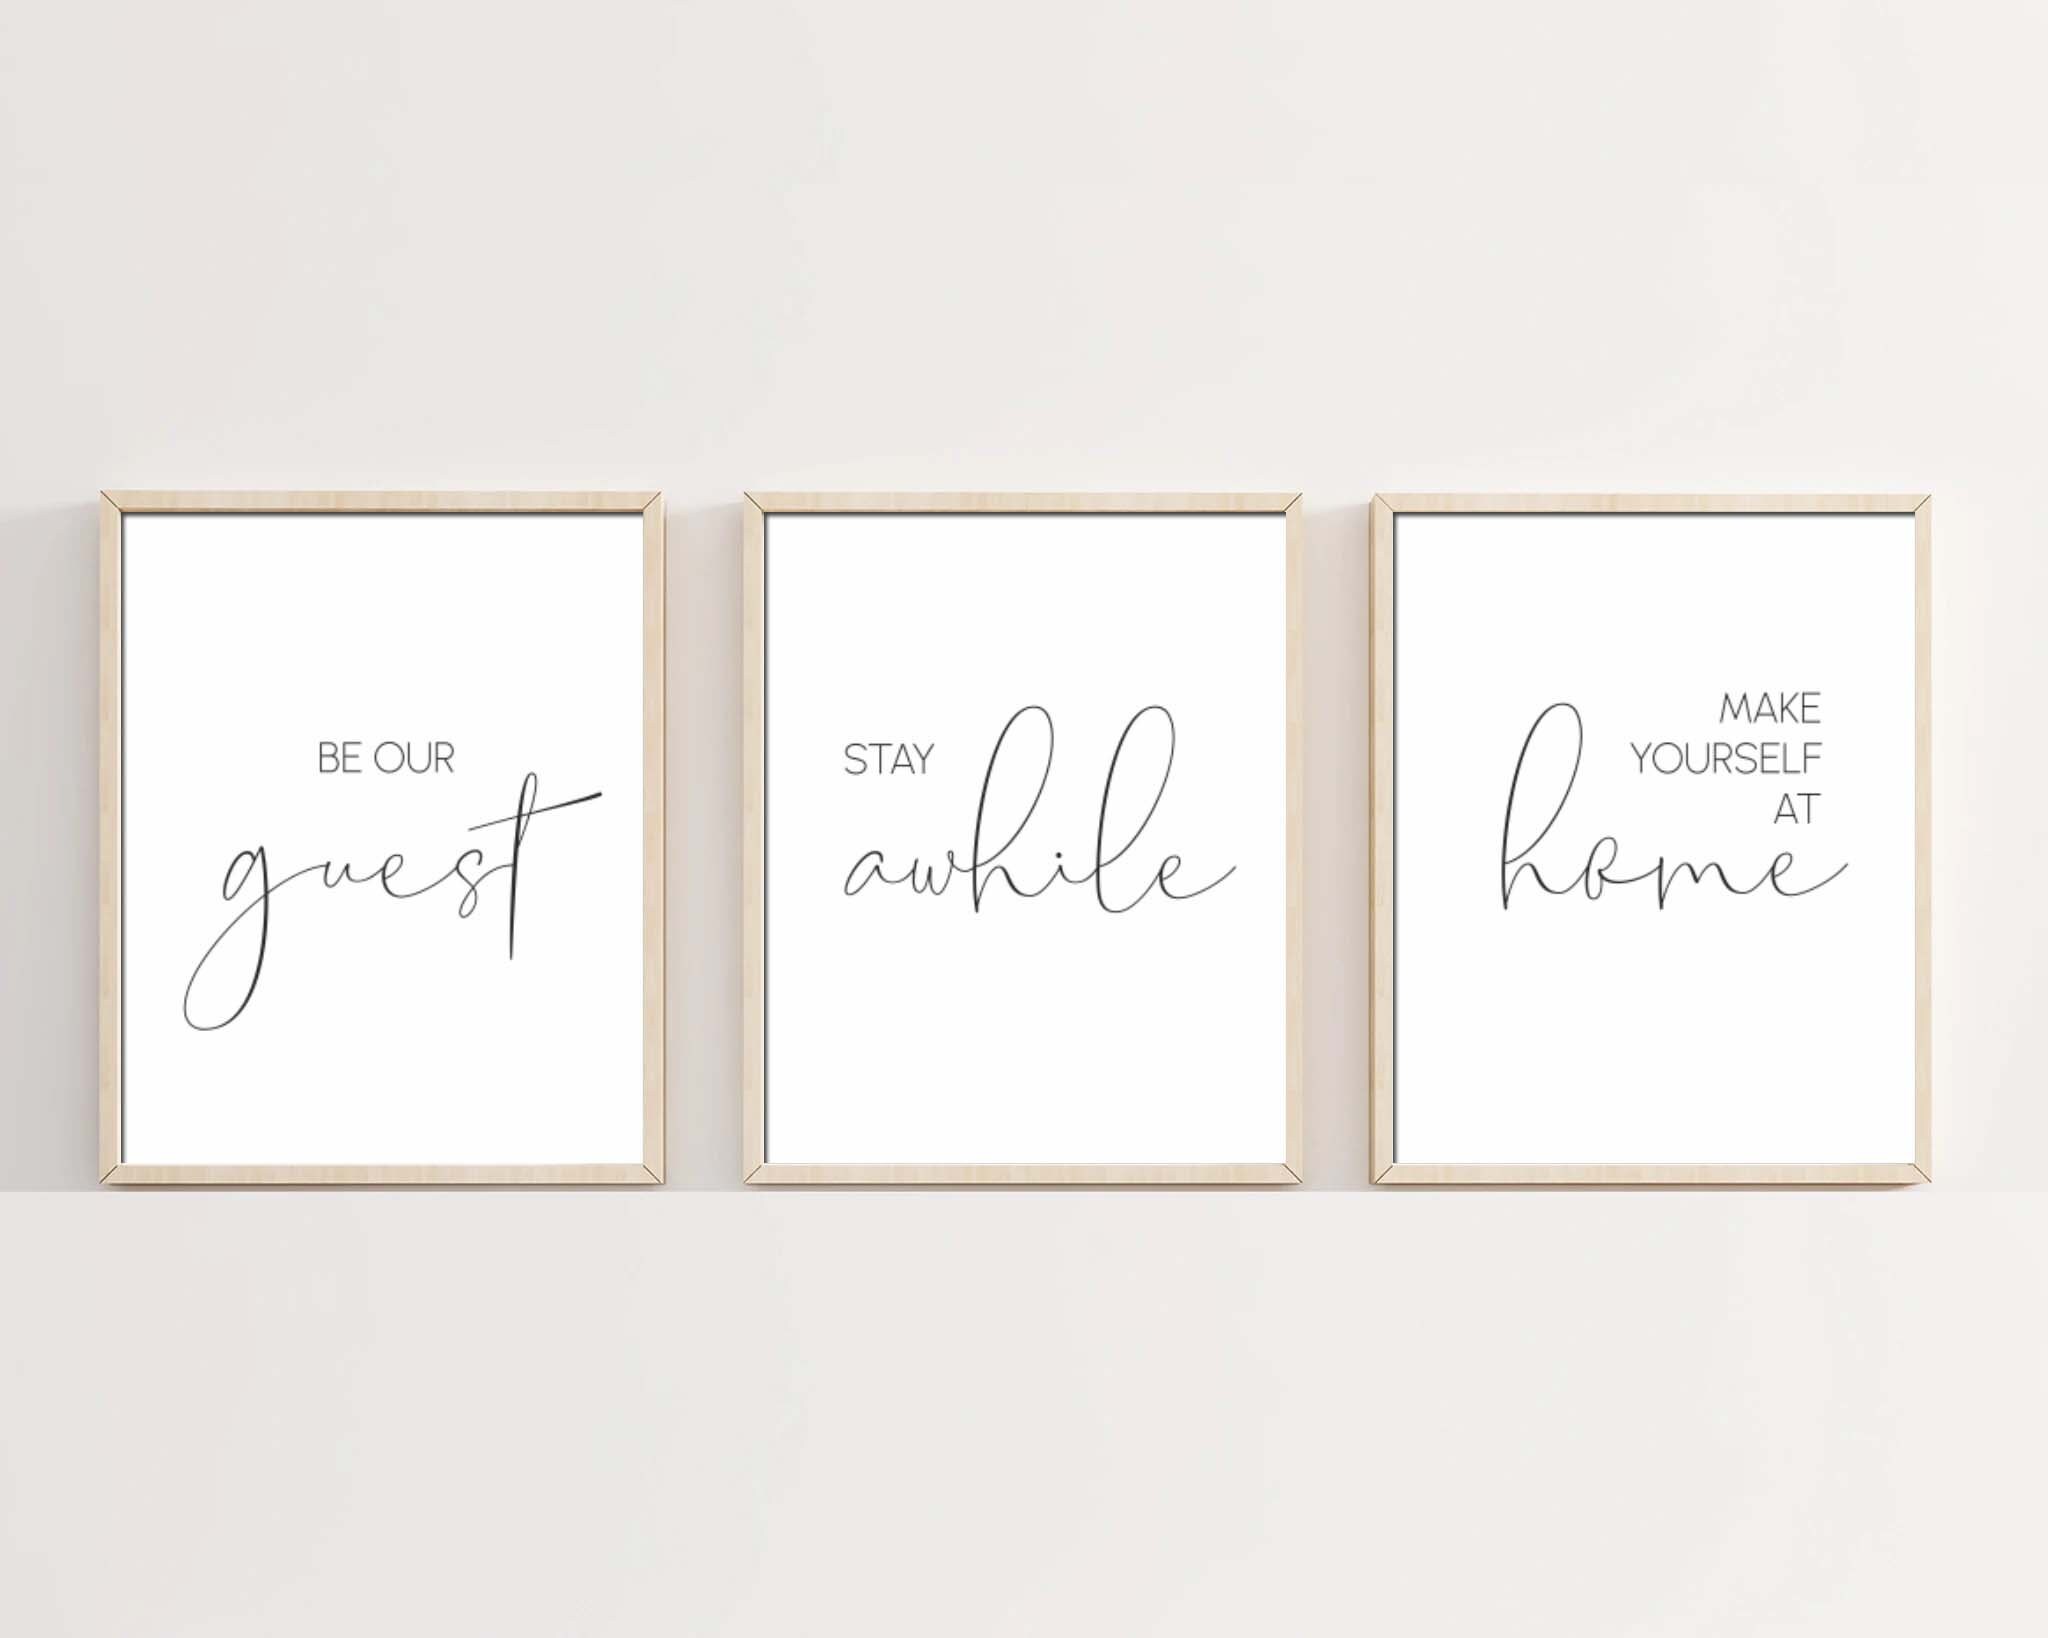 BE OUR
guest
STAY
awhile
MAKE
YOURSELF
AT
home